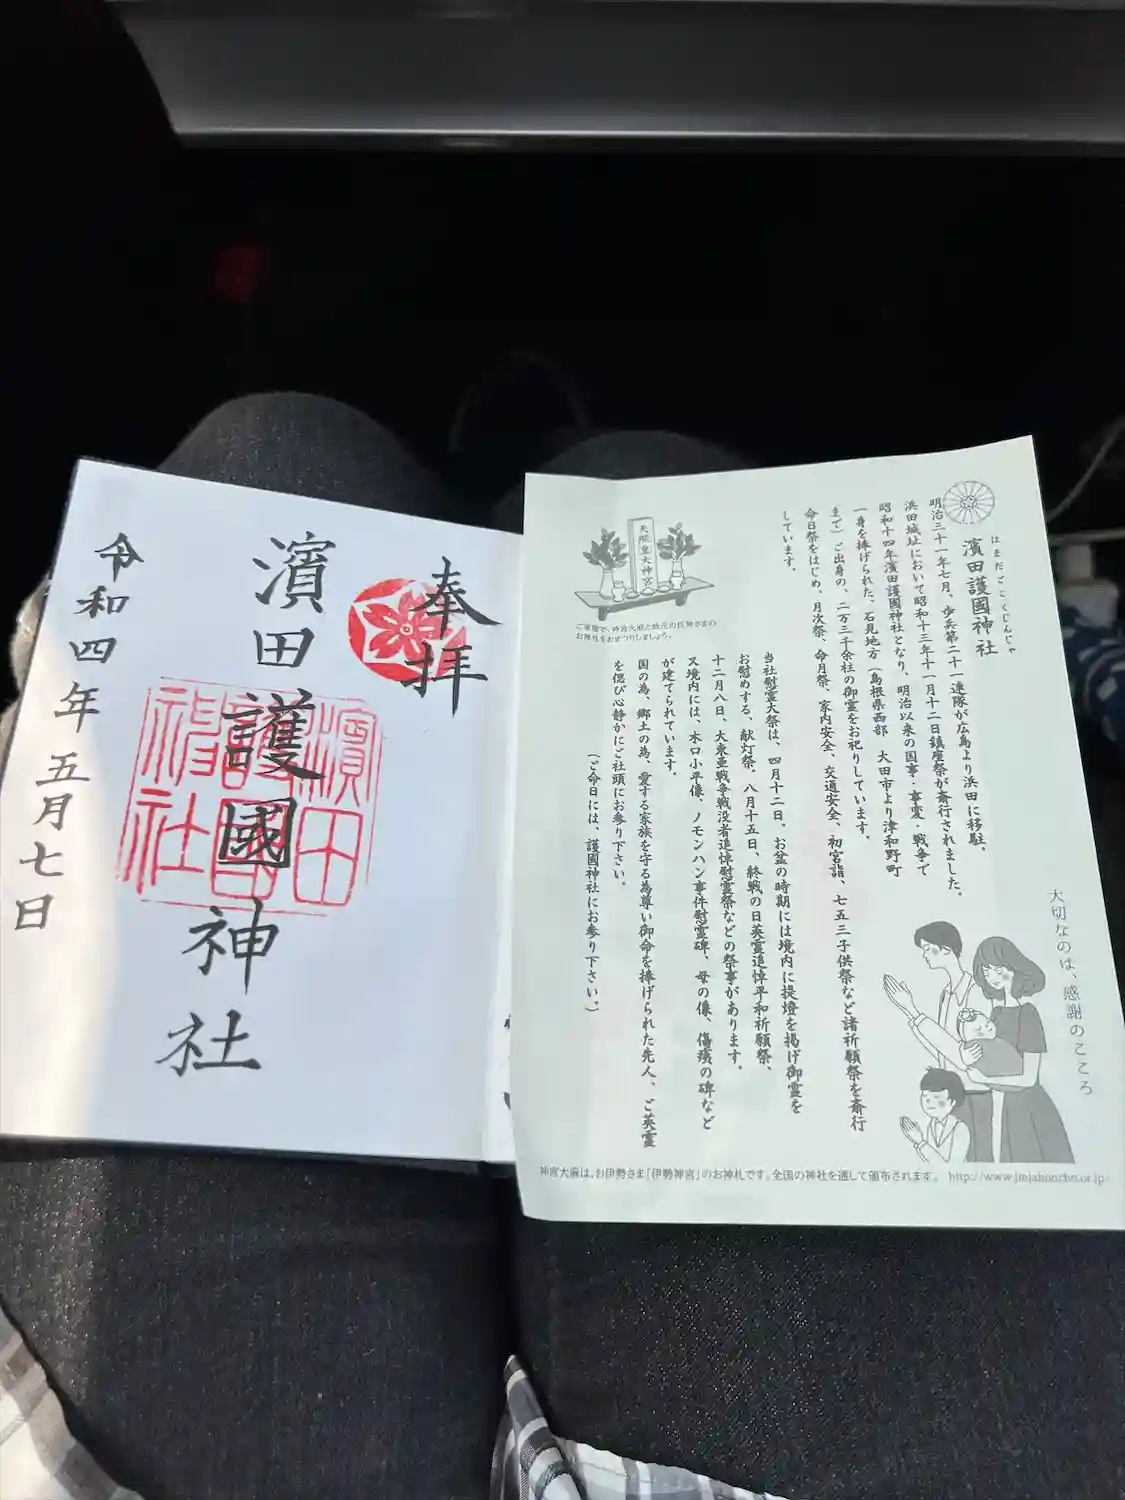 奉拝
濱田護國神社
令和四年五月七日
濱田
護國
神社
はまだごこくじんじゃ
濱田護國神社
明治三十一年七月、歩兵第二十一連隊が広島より浜田に移駐。
浜田城址において昭和十三年十一月十二日鎮座祭が斎行されました。
昭和十四年濱田護國神社となり、明治以来の国事・事変・戦争で
一身を捧げられた、石見地方(島根県西部 大田市より津和野町
まで)ご出身の、二万三千余柱の御霊をお祀りしています。
命日祭をはじめ、月次祭、命月祭、家内安全、交通安全、初宮詣、七五三子供祭など諸祈願祭を斎行
しています。
当社慰霊大祭は、四月十二日。お盆の時期には境内に提燈を掲げ御霊を
お慰めする、献灯祭、八月十五日、終戦の日英霊追悼平和祈願祭、
十二月八日、大東亜戦争戦没者追悼慰霊祭などの祭事があります。
又境内には、木口小平像、ノモンハン事件慰霊碑、母の像、傷痍の碑など
が建てられています。
国の為、郷土の為、愛する家族を守る為尊い御命を捧げられた先人、ご英霊
を偲び心静かにご社頭にお参り下さい。
(ご命日には、護國神社にお参り下さい。)
天照皇大神宮
ご家庭で、神宮大麻と地元の氏神さまの
お神札をおまつりしましょう。
大切なのは、感謝のこころ
神宮大麻は、お伊勢さま「伊勢神宮」のお神札です。全国の神社を通して頒布されます。 http://www.jinjahoncho.or.jp